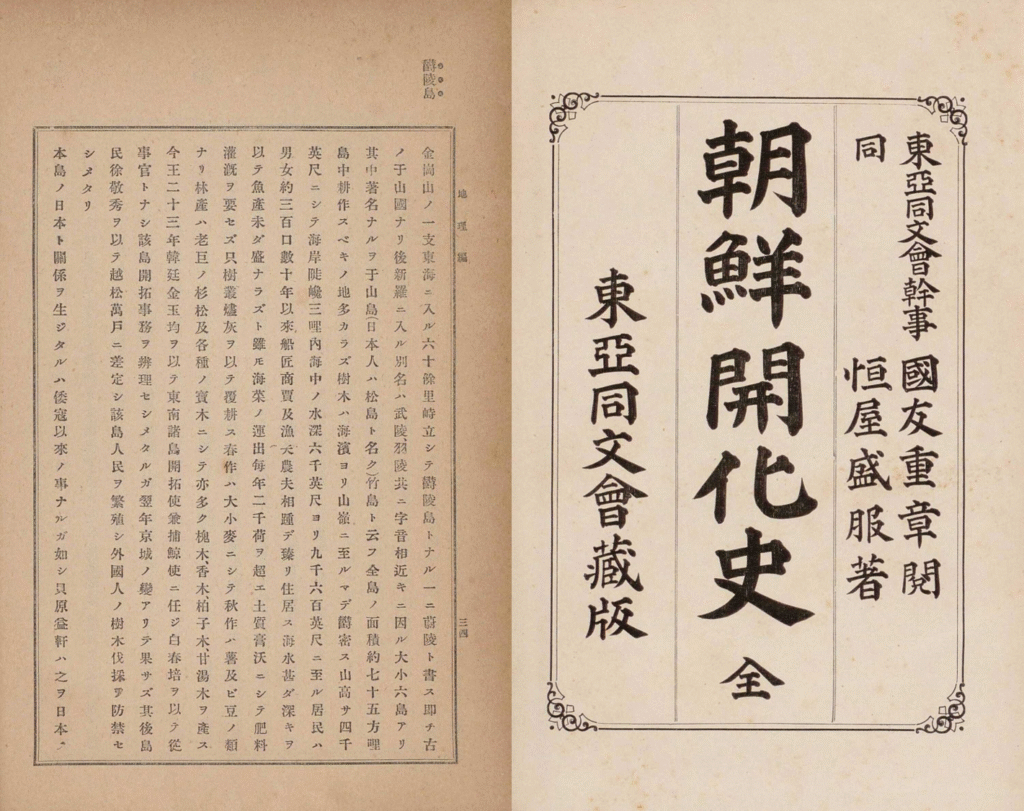 東亞同文會幹事 國友重章閱
同 恒屋盛服著
朝鮮開化史 全
東亞同文會藏版
欝陵島
地理編
三四
金崗山ノ一支東海ニ入ル六十餘里峙立シテ欝陵島トナル一ニ蔚陵ト書ス卽チ古
ノ于山國ナリ後新羅ニ入ル別名ハ武陵、羽陵共ニ字音相近キニ因ル大小六島アリ
其中著名ナルヲ于山島(日本人ハ松島ト名ク)竹島ト云フ全島ノ面積約七十五方哩
島中耕作スベキノ地多カラズ樹木ハ海濱ヨリ山嶺ニ至ルマデ欝密ス山高サ四千
英尺ニシテ海岸陡巉三哩內海中ノ水深六千英尺ヨリ九千六百英尺ニ至ル居民ハ
男女約三百口數十年以來船匠商賈及漁夫農夫相踵デ臻リ住居ス海水甚ダ深キヲ
以テ魚產未ダ盛ナラズト雖モ海菜ノ運出每年二千荷ヲ超エ土質膏沃ニシテ肥料
灌漑ヲ要セズ只樹叢燼灰ヲ以テ覆耕ス春作ハ大小麥ニシテ秋作ハ薯及ビ豆ノ類
ナリ林產ハ老巨ノ杉松及各種ノ寶木ニシテ亦多ク槐木、香木、柏子木、甘湯木ヲ產ス
今王二十三年韓廷金玉均ヲ以テ東南諸島開拓使兼捕鯨使ニ任ジ白春培ヲ以テ從
事官トナシ該島開拓事務ヲ辨理セシメタルガ翌年京城ノ變アリテ果サズ其後島
民徐敬秀ヲ以テ越松萬戶ニ差定シ該島人民ヲ繁殖シ外國人ノ樹木伐採ヲ防禁セ
シメタリ
本島ノ日本ト關係ヲ生ジタルハ倭寇以來ノ事ナルガ如シ貝原益軒ハ之ヲ日本ノ